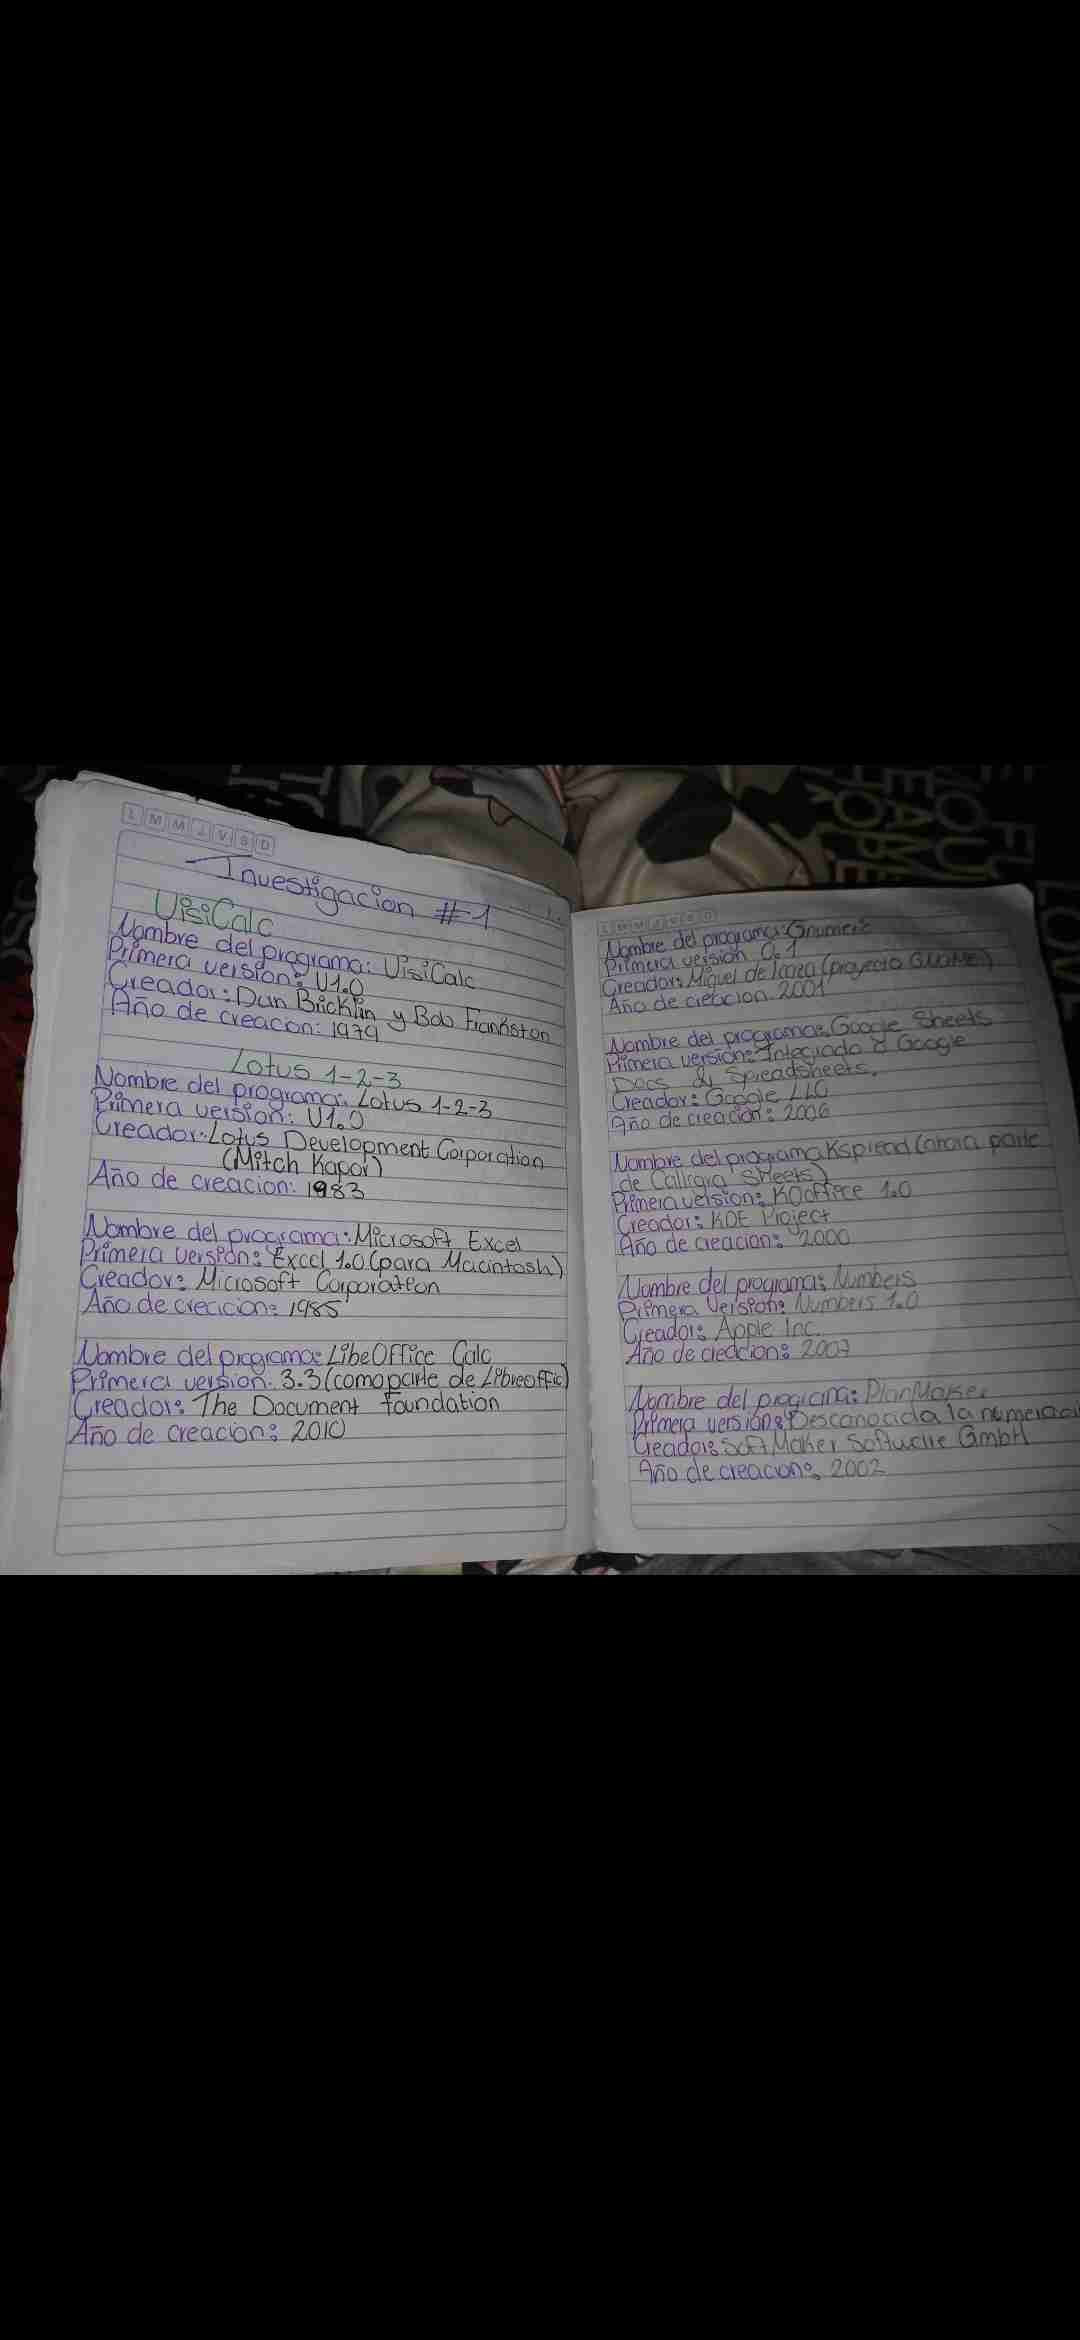 L M M J V S D
Investigacion #1
VisiCalc
Nombre del programa: VisiCalc
Primera version: V1.0
Creador: Dan Bricklin y Bob Frankston
Año de creacon: 1979
Lotus 1-2-3
Nombre del programa: Lotus 1-2-3
Primera version: V1.0
Creador: Lotus Development Corporation
(Mitch Kapor)
Año de creacion: 1983
Nombre del programa: Microsoft Excel
Primera version: Excel 1.0 (para Macintosh)
Creador: Microsoft Corporation
Año de creacion: 1985
Nombre del programa: LibeOffice Calc
Primera version: 3.3 (como parte de Libreoffic)
Creador: The Document Foundation
Año de creacion: 2010
L M M J V S D
Nombre del programa: Gnumeric
Primera version 0.1
Creador: Miguel de Icaza (proyecto GNOME)
Año de creacion 2001
Nombre del programa: Google Sheets
Primera version: Integrado a Google
Docs & Spreadsheets.
Creador: Google LLC
Año de creacion: 2006
Nombre del programa Kspread (ahora parte
de Calligra Sheets)
Primera version: KOffice 1.0
Creador: KDE Project
Año de creacion: 2000
Nombre del programa: Numbers
Primera version: Numbers 1.0
Creador: Apple Inc.
Año de creacion: 2007
Nombre del programa: PlanMaker
Primera version: Desconocida la numeraci
Creador: SoftMaker Software GmbH
Año de creacion: 2002